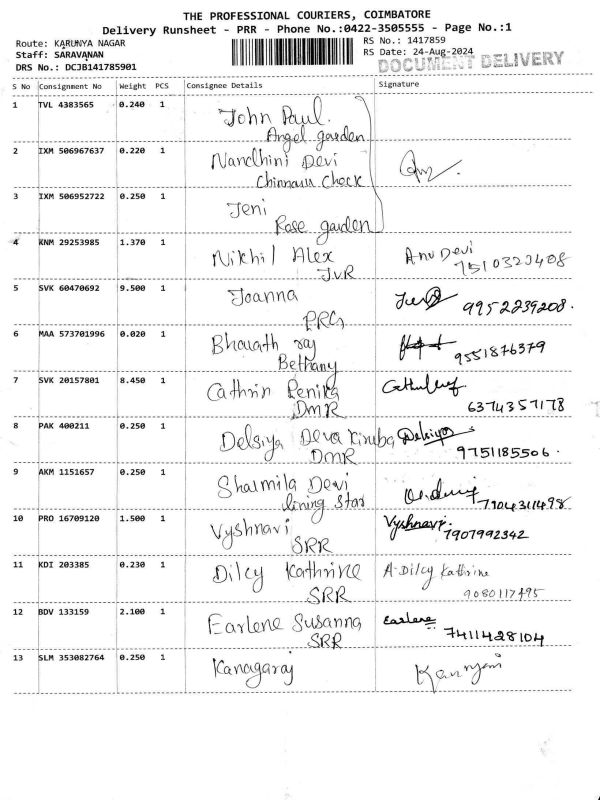 THE PROFESSIONAL COURIERS, COIMBATORE
Delivery Runsheet - PRR - Phone No.:0422-3505555 - Page No.:1
Route: KARUNYA NAGAR
Staff: SARAVANAN
DRS No.: DCJB141785901
RS No.: 1417859
RS Date: 24-Aug-2024
DOCUMENT DELIVERY
S No Consignment No Weight PCS Consignee Details Signature
1 TVL 4383565 0.240 1 John Paul.
Angel garden
2 IXM 506967637 0.220 1 Nandhini Devi
Chinnavu Check
3 IXM 506952722 0.250 1 Jeni
Rose garden
4 KNM 29253985 1.370 1 Nikhil Alex Anu Devi
JVR 7510323408
5 SVK 60470692 9.500 1 Joanna
PRG 9952239208.
6 MAA 573701996 0.020 1 Bharath raj
Bethany 9551876379
7 SVK 20157801 8.450 1 Cathrin Renika
DMR 6374357178
8 PAK 400211 0.250 1 Delsiya Deva Kiruba Delsiya
DMR 9751185506.
9 AKM 1151657 0.250 1 Sharmila Devi
lining Star 7904311498
10 PRO 16709120 1.500 1 Vyshnavi Vyshnavi.
SRR 7907992342
11 KDI 203385 0.230 1 Dilcy Kathrine A-Dilcy Kathrine
SRR 9080117495
12 BDV 133159 2.100 1 Earlene Susanna Earlene
SRR 7411428104
13 SLM 353082764 0.250 1 Kanagaraj